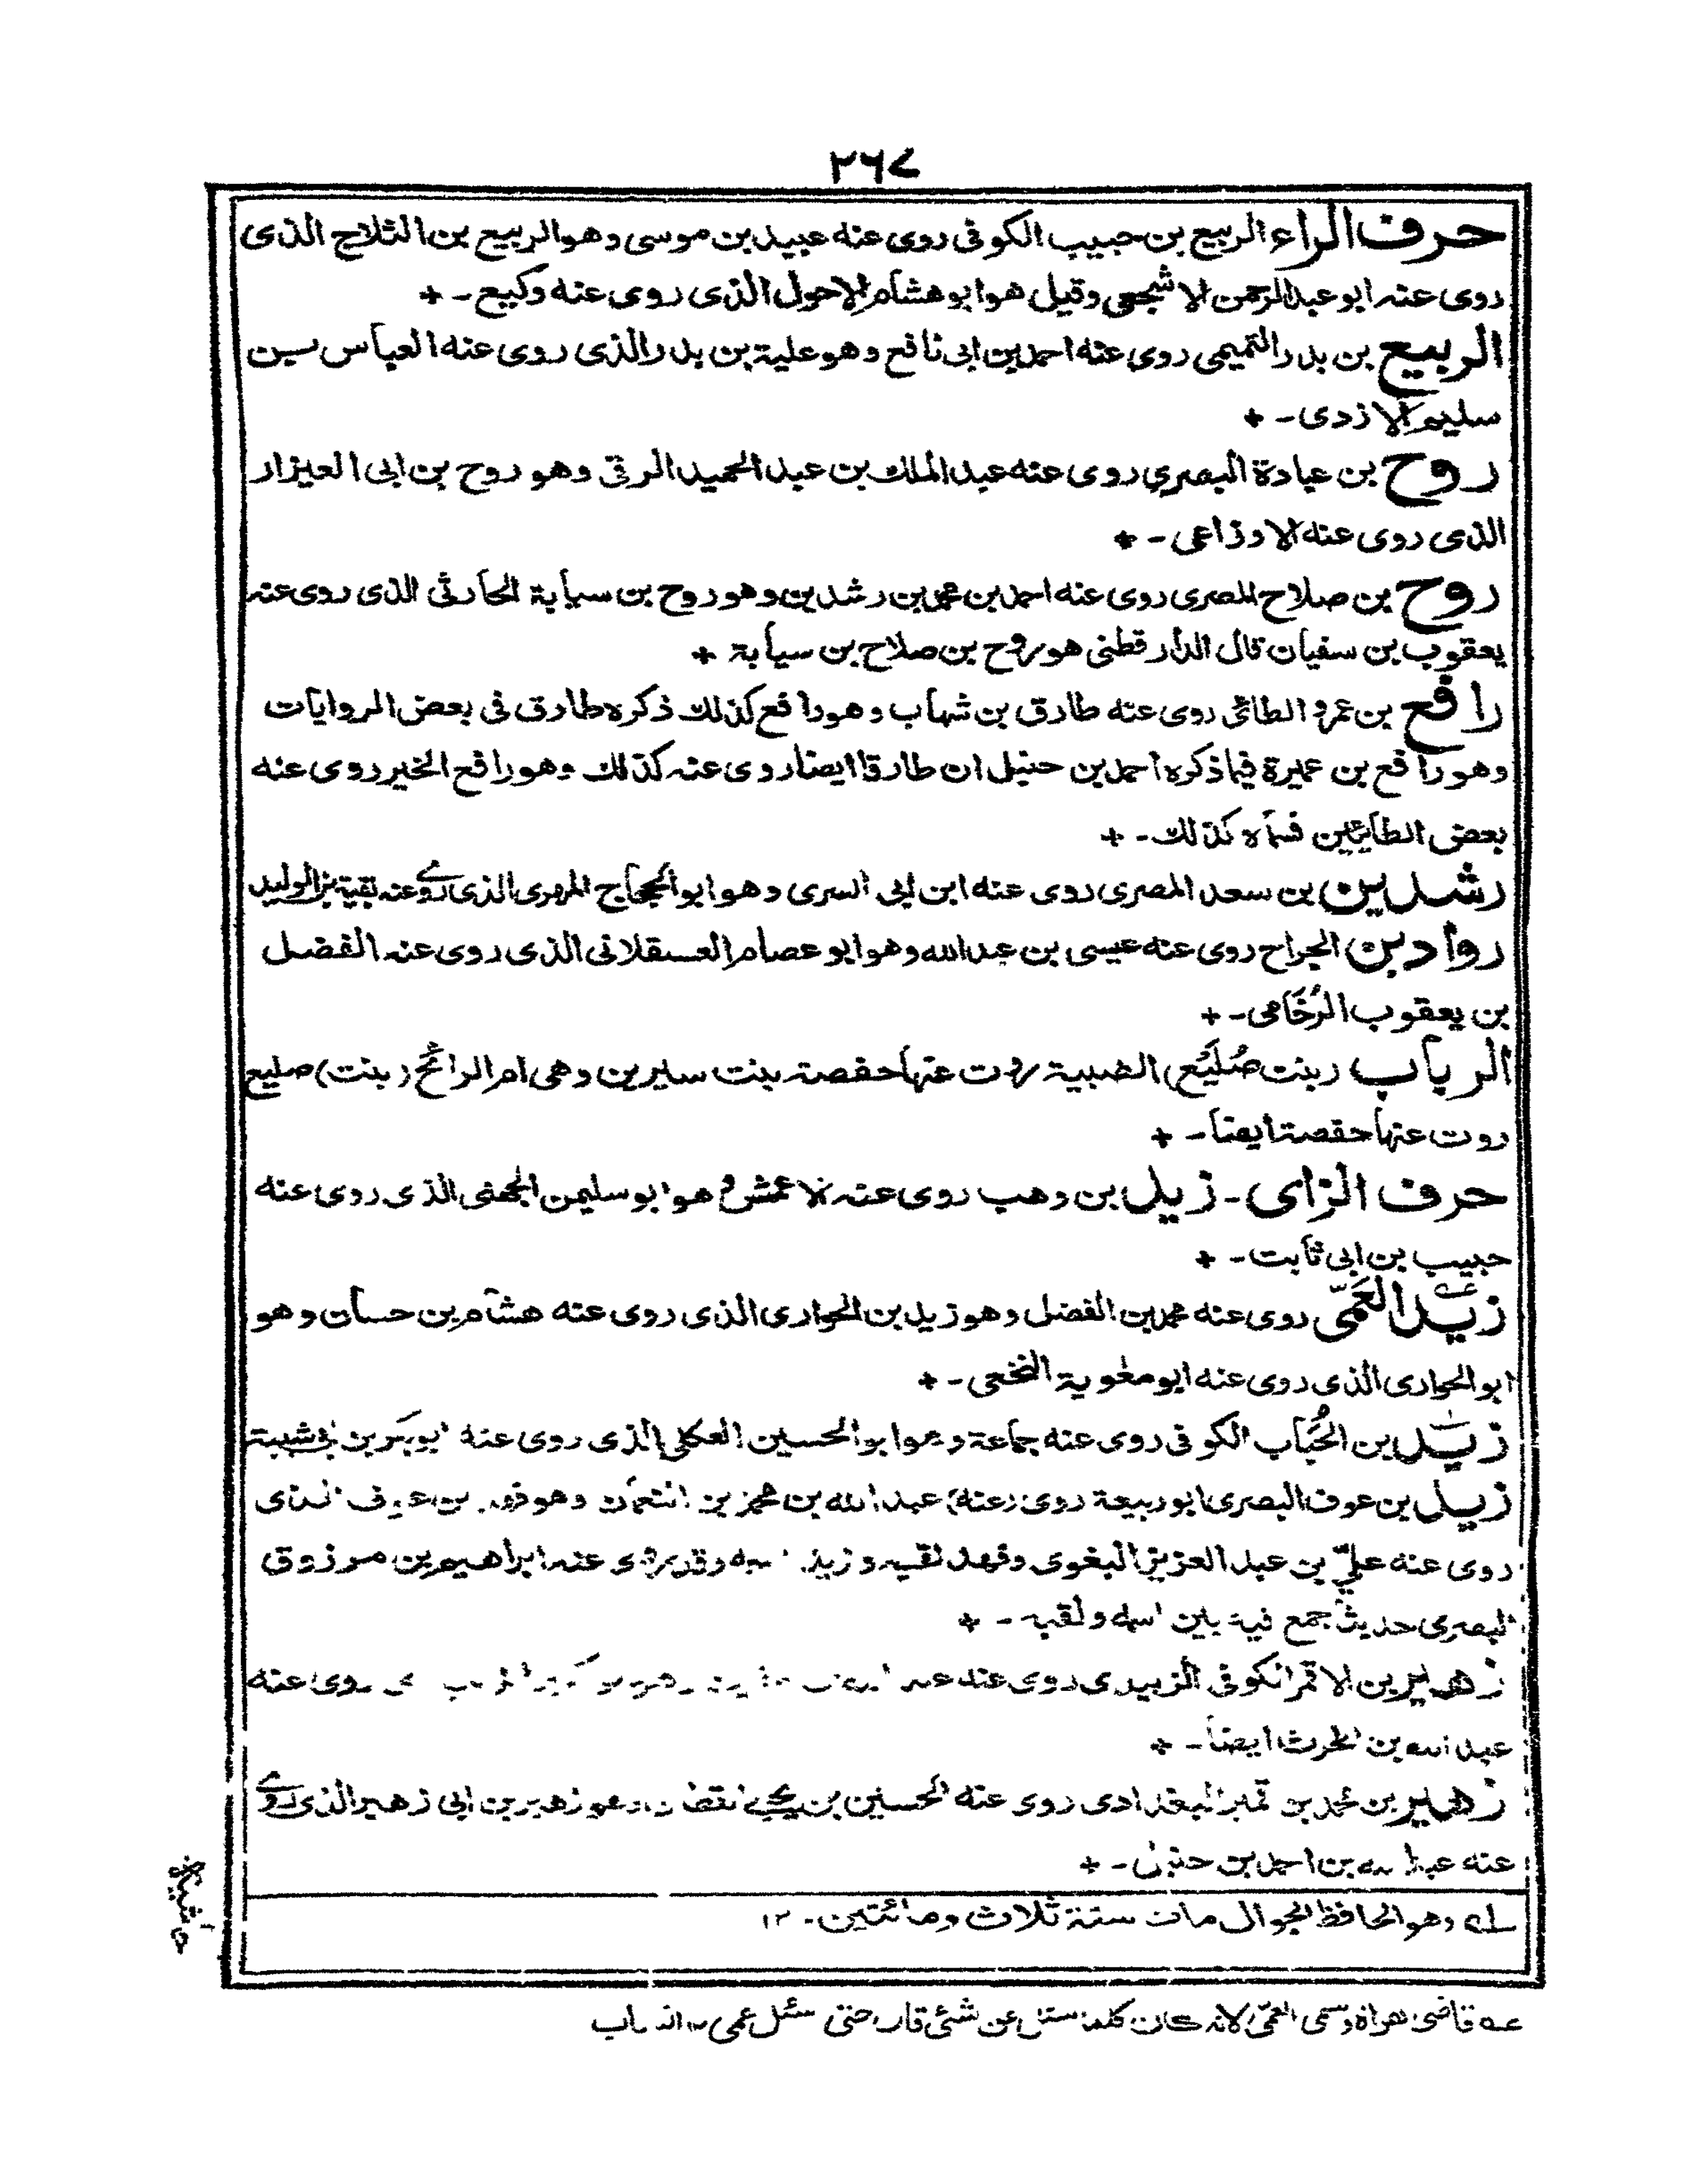 ٢٦٧
حرف الراء الربيع بن حبيب الكوفى روى عنه عبيد بن موسى وهو الربيع بن الثلاج الذى
روى عنه ابو عبدالرحمن الاشجعى وقيل هو ابو هشام الاحول الذى روى عنه وكيع - +
الربيع بن بدر التميمى روى عنه احمد بن ابى نافع وهو علية بن بدر الذى روى عنه العباس بن
سليم الازدى - +
روح بن عبادة البصرى روى عنه عبد الملك بن عبد الحميد الرقى وهو روح بن ابى العيزار
الذى روى عنه الاوزاعى - +
روح بن صلاح المصرى روى عنه احمد بن محمد بن رشدين وهو روح بن سيابة الحارثى الذى روى عنه
يعقوب بن سفيان قال الدارقطنى هو روح بن صلاح بن سيابة +
رافع بن عمرو الطائى روى عنه طارق بن شهاب وهو رافع كذلك ذكره طارق فى بعض الروايات
وهو رافع بن عميرة فيما ذكره احمد بن حنبل ان طارقا ايضا روى عنه كذلك وهو رافع الخير روى عنه
بعض الطائيين فسماه كذلك - +
رشدين بن سعد المصرى روى عنه ابن ابى السرى وهو ابو الحجاج المهرى الذى روى عنه بقية بن الوليد
رواد بن الجراح روى عنه عيسى بن عبد الله وهو ابو عصام العسقلانى الذى روى عنه الفضل
بن يعقوب الرُخَامى - +
الرباب (بنت صُلَيْع) الضبية روت عنها حفصة بنت سيرين وهى ام الرائح (بنت) صليع
روت عنها حفصة ايضا - +
حرف الزاى - زيد بن وهب روى عنه الاعمش وهو ابو سليمن الجهنى الذى روى عنه
حبيب بن ابى ثابت - +
زيد العَمِّى روى عنه محمد بن الفضل وهو زيد بن الحوارى الذى روى عنه هشام بن حسان وهو
ابو الحوارى الذى روى عنه ابو معٰوية النخعى - +
زيد بن الحُبَاب الكوفى روى عنه جماعة وهو ابو الحسين العكلى الذى روى عنه ابو بكر بن ابى شيبة
زيد بن عوف البصرى ابو ربيعة روى (عنه) عبد الله بن محمد بن النعمان وهو فهد بن عوف الذى
روى عنه على بن عبد العزيز البغوى وفهد لقبه وزيد اسمه وقد روى عنه ابراهيم بن مرزوق
البصرى حديثا جمع فيه بين اسمه ولقبه - +
زهير بن الاقمر الكوفى الزبيدى روى عنه عبد روى عنه
عبد الله بن الحرث ايضا - +
زهير بن محمد بن قمير البغدادى روى عنه الحسين بن يحيى وهو زهير بن ابى زهير الذى روى
عنه عبد الله بن احمد بن حنبل - +
لـه وهو الحافظ الجوال مات سنة ثلاث ومائتين - ١٢
حاشية
عـه قاضى هراة وسمى العمّى لانه كان كلما سئل عن شئ قال حتى سئل عمى